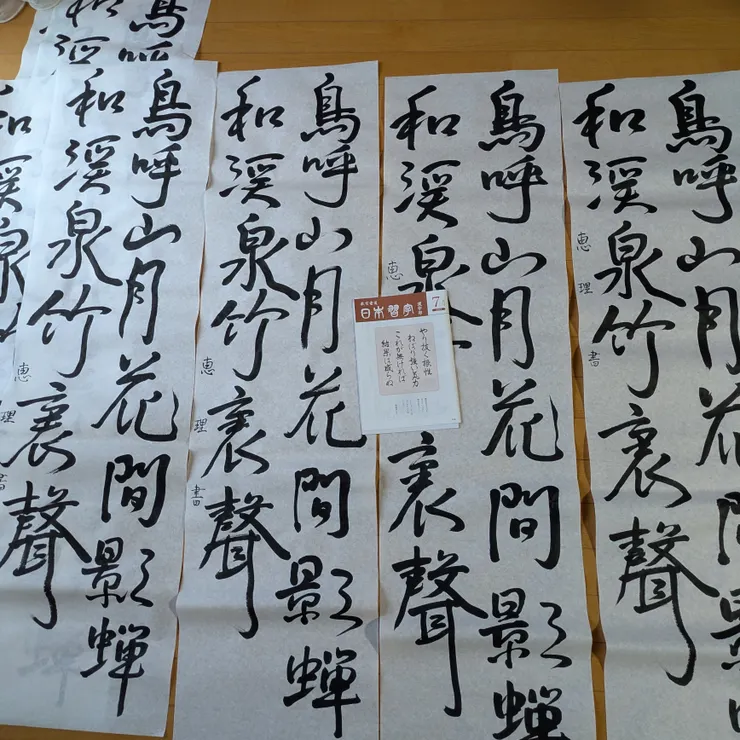 鳥呼山月花間影
和渓泉竹裏聲
恵理書
鳥呼山月花間影蝉
和渓泉竹裏聲
恵
日本習字
7
やり抜く根性
ねばり強い気力
これが無ければ
結果は成らぬ
鳥呼山月花間影蝉
和渓泉竹裏聲
恵理書
鳥呼山月花間影蝉
和渓泉竹裏聲
恵理書
鳥呼
和渓
和渓泉